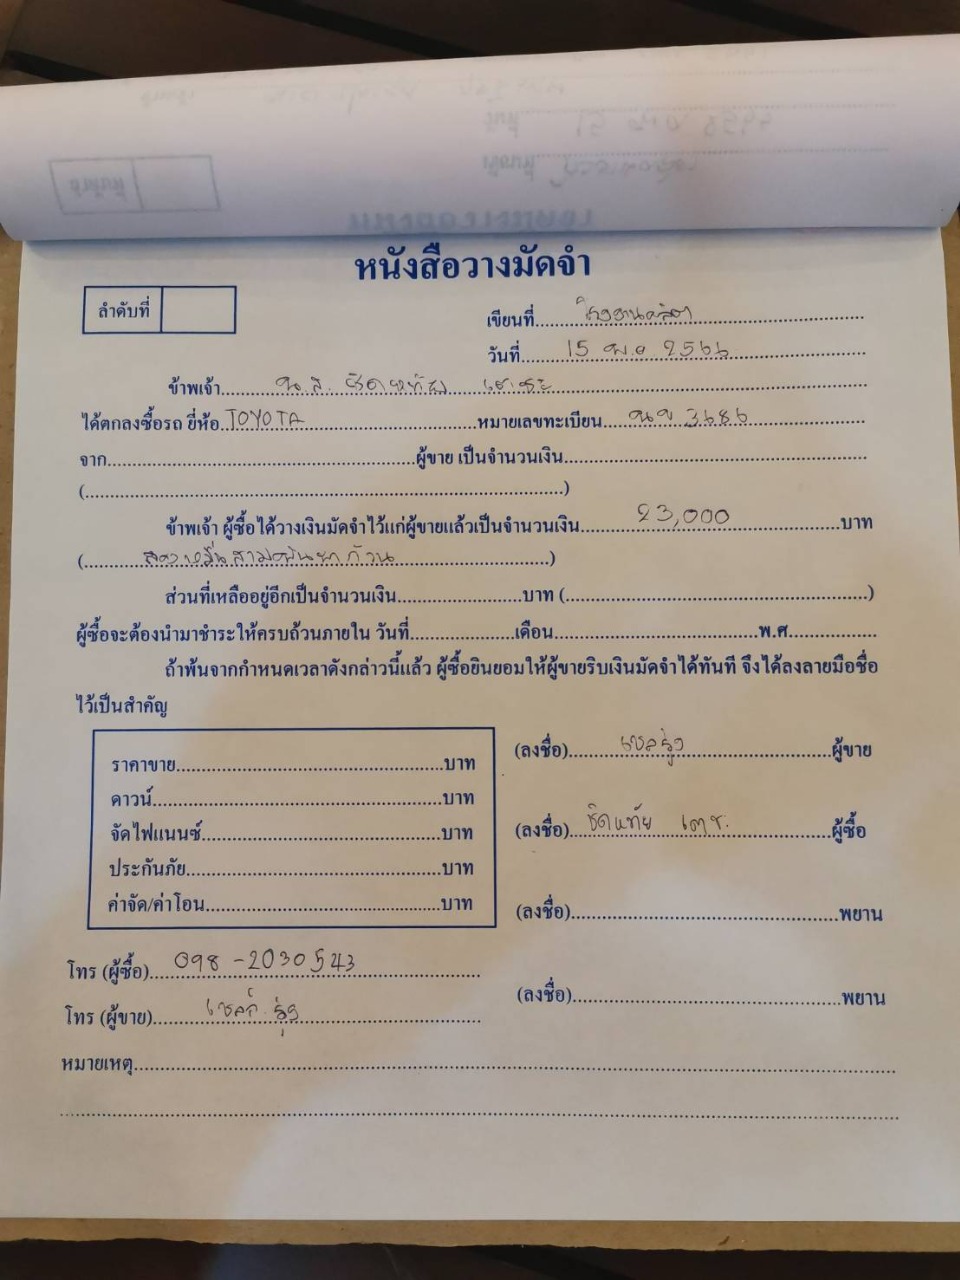 หนังสือวางมัดจำ
ลำดับที่
เขียนที่
วันที่ 15 พ.ย 2566
ข้าพเจ้า น.ส.
ได้ตกลงซื้อรถ ยี่ห้อ TOYOTA หมายเลขทะเบียน 3686
จาก ผู้ขาย เป็นจำนวนเงิน
( )
ข้าพเจ้า ผู้ซื้อได้วางเงินมัดจำไว้แก่ผู้ขายแล้วเป็นจำนวนเงิน 23,000 บาท
(สองหมื่นสามพันบาทถ้วน)
ส่วนที่เหลืออยู่อีกเป็นจำนวนเงิน บาท ( )
ผู้ซื้อจะต้องนำมาชำระให้ครบถ้วนภายใน วันที่ เดือน พ.ศ.
ถ้าพ้นจากกำหนดเวลาดังกล่าวนี้แล้ว ผู้ซื้อยินยอมให้ผู้ขายริบเงินมัดจำได้ทันที จึงได้ลงลายมือชื่อ
ไว้เป็นสำคัญ
ราคาขาย บาท
ดาวน์ บาท
จัดไฟแนนซ์ บาท
ประกันภัย บาท
ค่าจัด/ค่าโอน บาท
(ลงชื่อ) ผู้ขาย
(ลงชื่อ) ผู้ซื้อ
(ลงชื่อ) พยาน
(ลงชื่อ) พยาน
โทร (ผู้ซื้อ) 098-2030543
โทร (ผู้ขาย)
หมายเหตุ